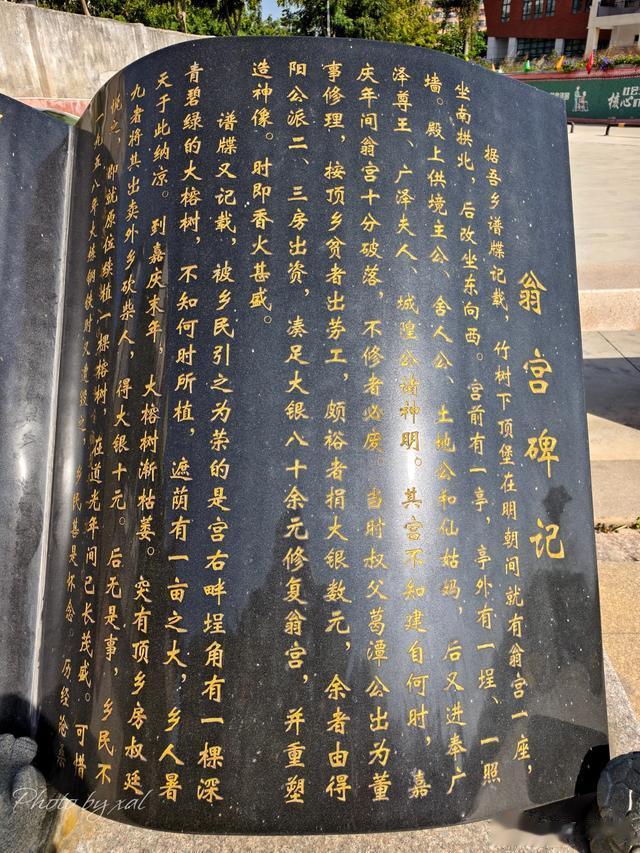 翁宫碑记
据吾乡谱牒记载，竹树下顶堡在明朝间就有翁宫一座，
坐南拱北，后改坐东向西。宫前有一亭，亭外有一埕、一照
墙。殿上供境主公、舍人公、土地公和仙姑妈，后又进奉广
泽尊王、广泽夫人、城隍公诸神明。其宫不知建自何时，嘉
庆年间翁宫十分破落，不修者必废。当时叔父葛潭公出为董
事修理，按顶乡贫者出劳工，颇裕者捐大银数元，余者由得
阳公派二、三房出资，凑足大银八十余元修复翁宫，并重塑
造神像。时即香火甚盛。
谱牒又记载，被乡民引之为荣的是宫右畔埕角有一棵深
青碧绿的大榕树，不知何时所植，遮荫有一亩之大，乡人暑
天于此纳凉。到嘉庆末年，大榕树渐枯萎。突有顶乡房叔廷
九者将其出卖外乡砍柴人，得大银十元。后无是事，乡民不
悦之，即就原位续植一棵榕树，在道光年间已长茂盛。可惜
一九五八年大炼钢铁时又遭毁之，乡民甚是怀念。历经沧桑
Photo by xal
核心